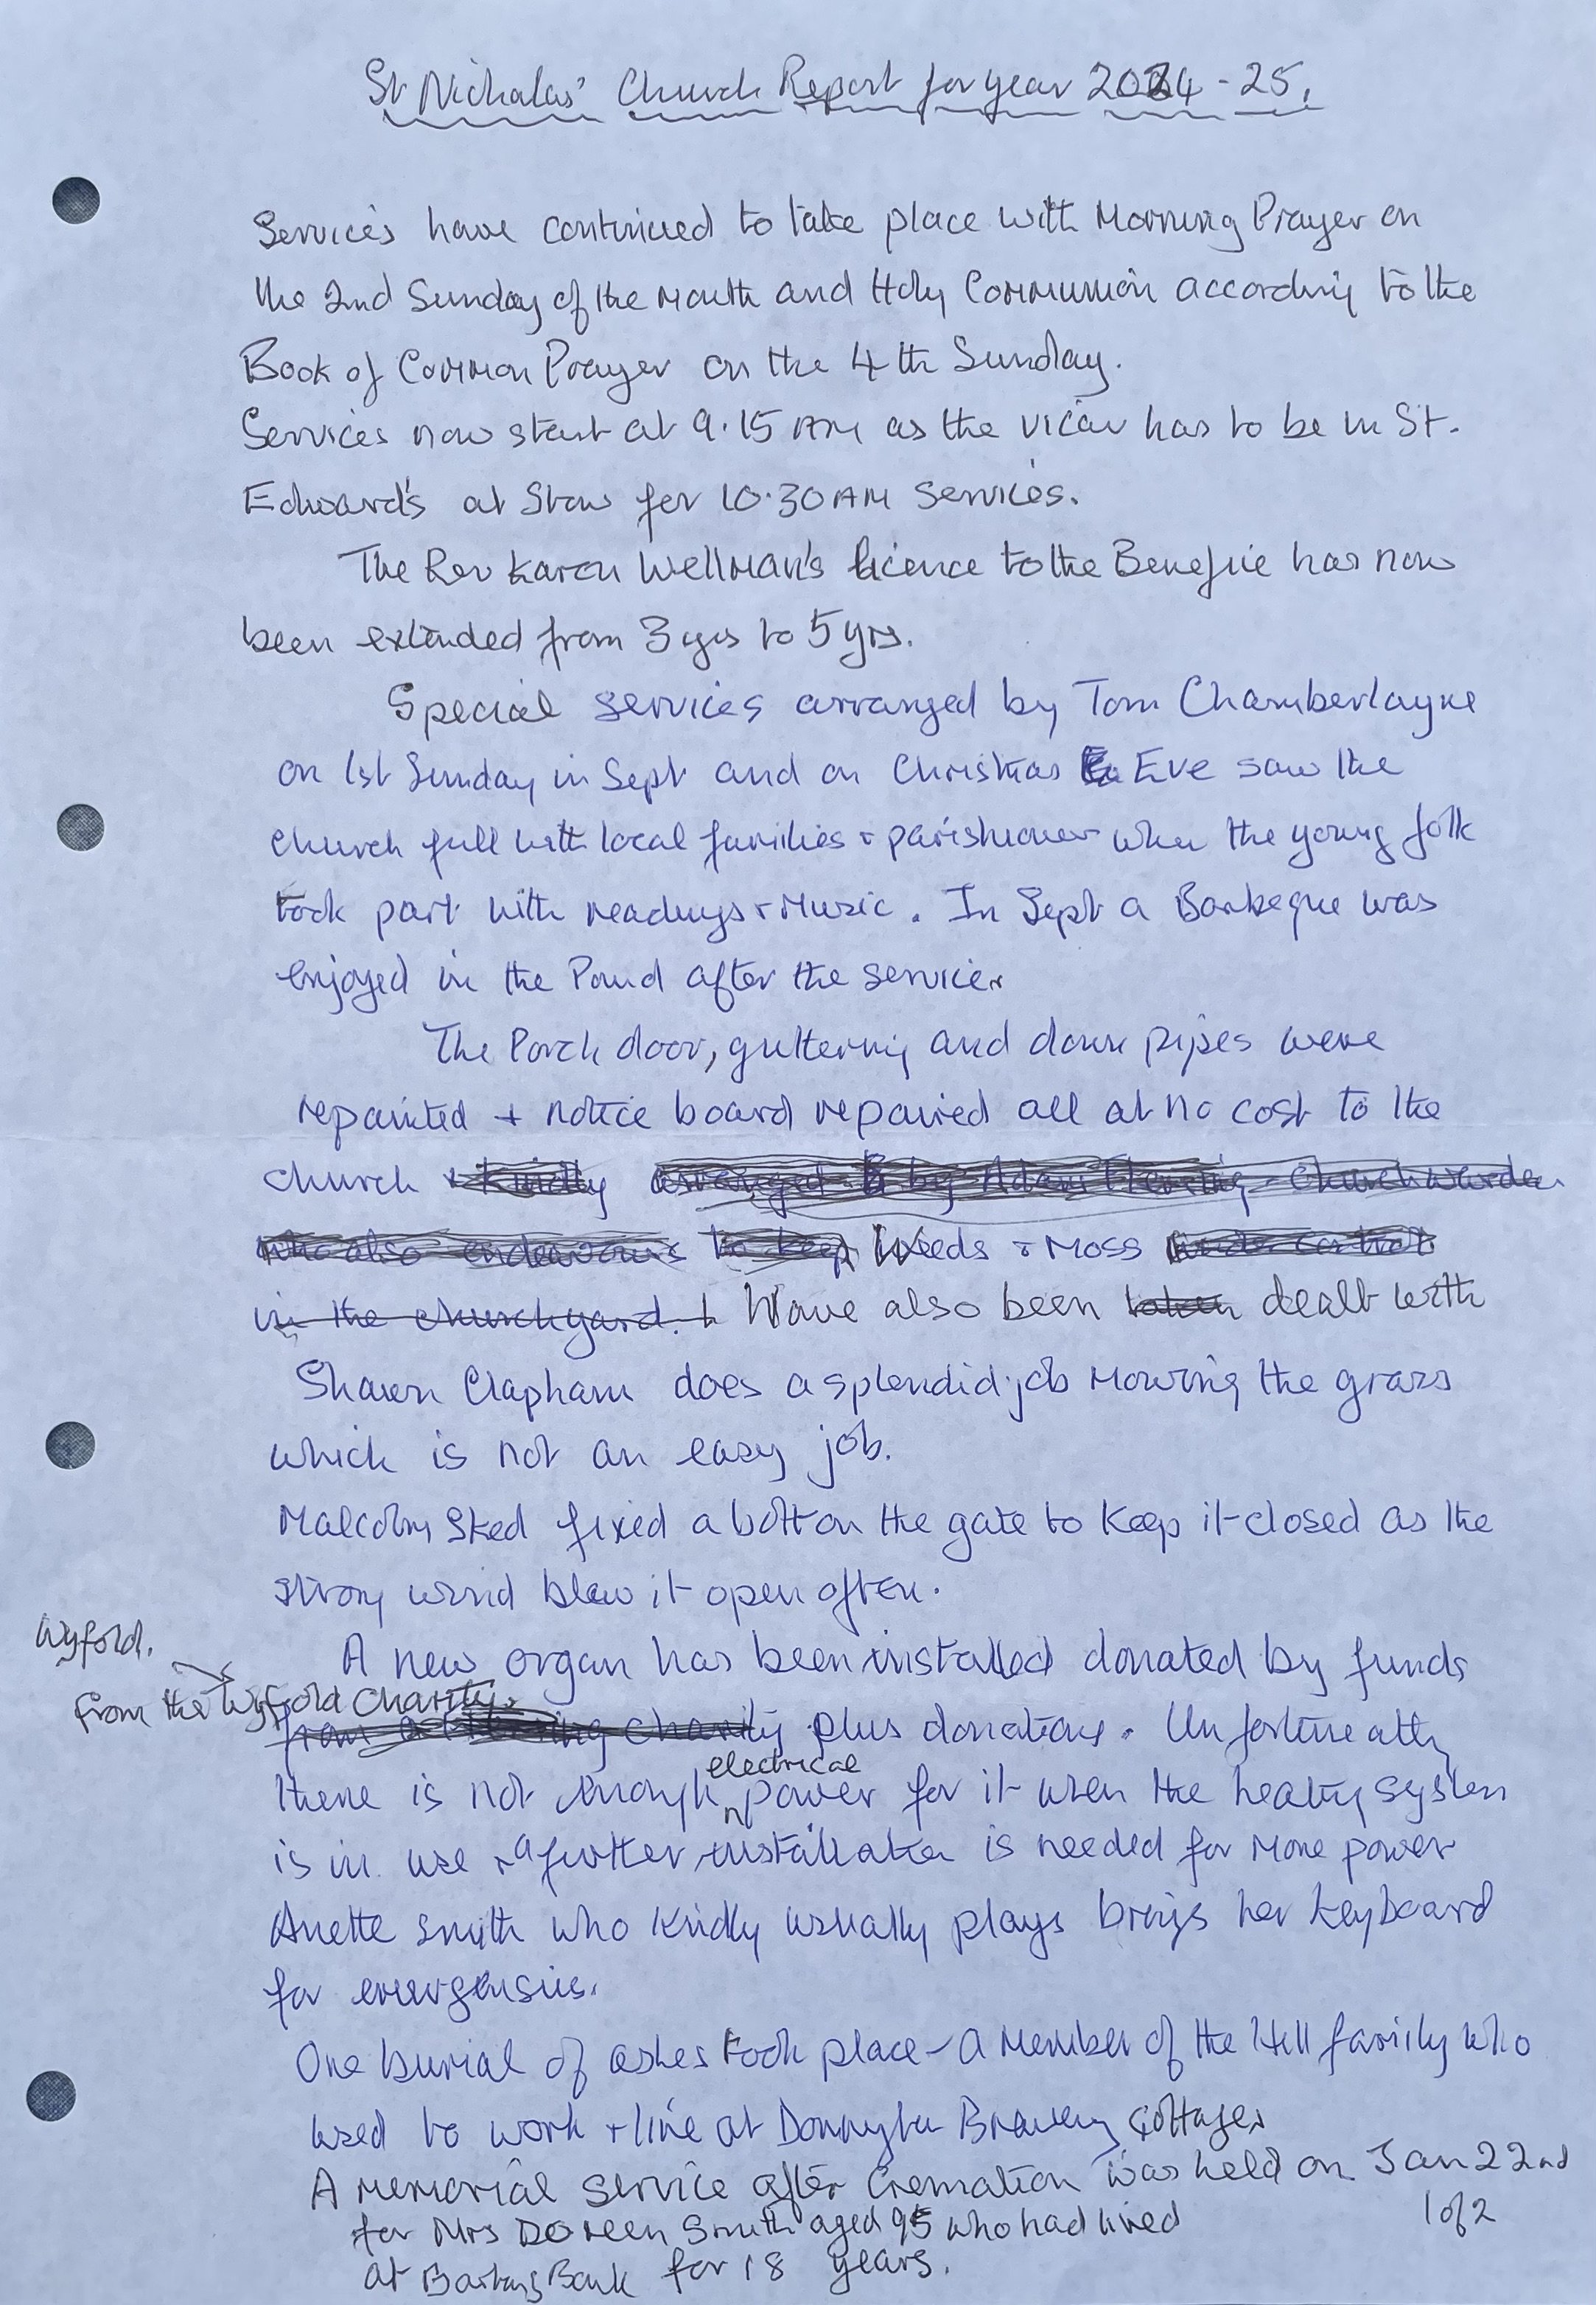 St Nicholas' Church Report for year 2024-25.
Services have continued to take place with Morning Prayer on
the 2nd Sunday of the Month and Holy Communion according to the
Book of Common Prayer on the 4th Sunday.
Services now start at 9.15 AM as the vicar has to be in St.
Edward's at Stow for 10.30 AM services.
The Rev Karen Wellman's licence to the Benefice has now
been extended from 3 yrs to 5 yrs.
Special services arranged by Tom Chamberlayne
on 1st Sunday in Sept and on Christmas Eve saw the
church full with local families + parishioners when the young folk
took part with readings + Music. In Sept a Barbeque was
enjoyed in the Pound after the service.
The Porch door, guttering and down pipes were
repainted + notice board repaired all at no cost to the
church + kindly arranged by Adam Fleming - Churchwarden
who also endeavours to keep Weeds + Moss under control
in the churchyard. + Have also been taken dealt with
Shaun Clapham does a splendid job Mowing the grass
which is not an easy job.
Malcolm Sked fixed a bolt on the gate to keep it closed as the
strong wind blew it open often.
Wyfold.
A new organ has been installed donated by funds
from the Wyfold Charity.
from a Fleming charity plus donations. Unfortuneatly
electrical
there is not enough power for it when the heating system
is in use + a further installation is needed for More power
Anette Smith who kindly usually plays brings her keyboard
for emergensies.
One burial of ashes took place - a Member of the Hill family who
used to work + live at Donnington Brewery Cottages
A Memorial Service after Cremation was held on Jan 22nd
for Mrs Doreen Smith aged 95 who had lived
1 of 2
at Bank for 18 years.